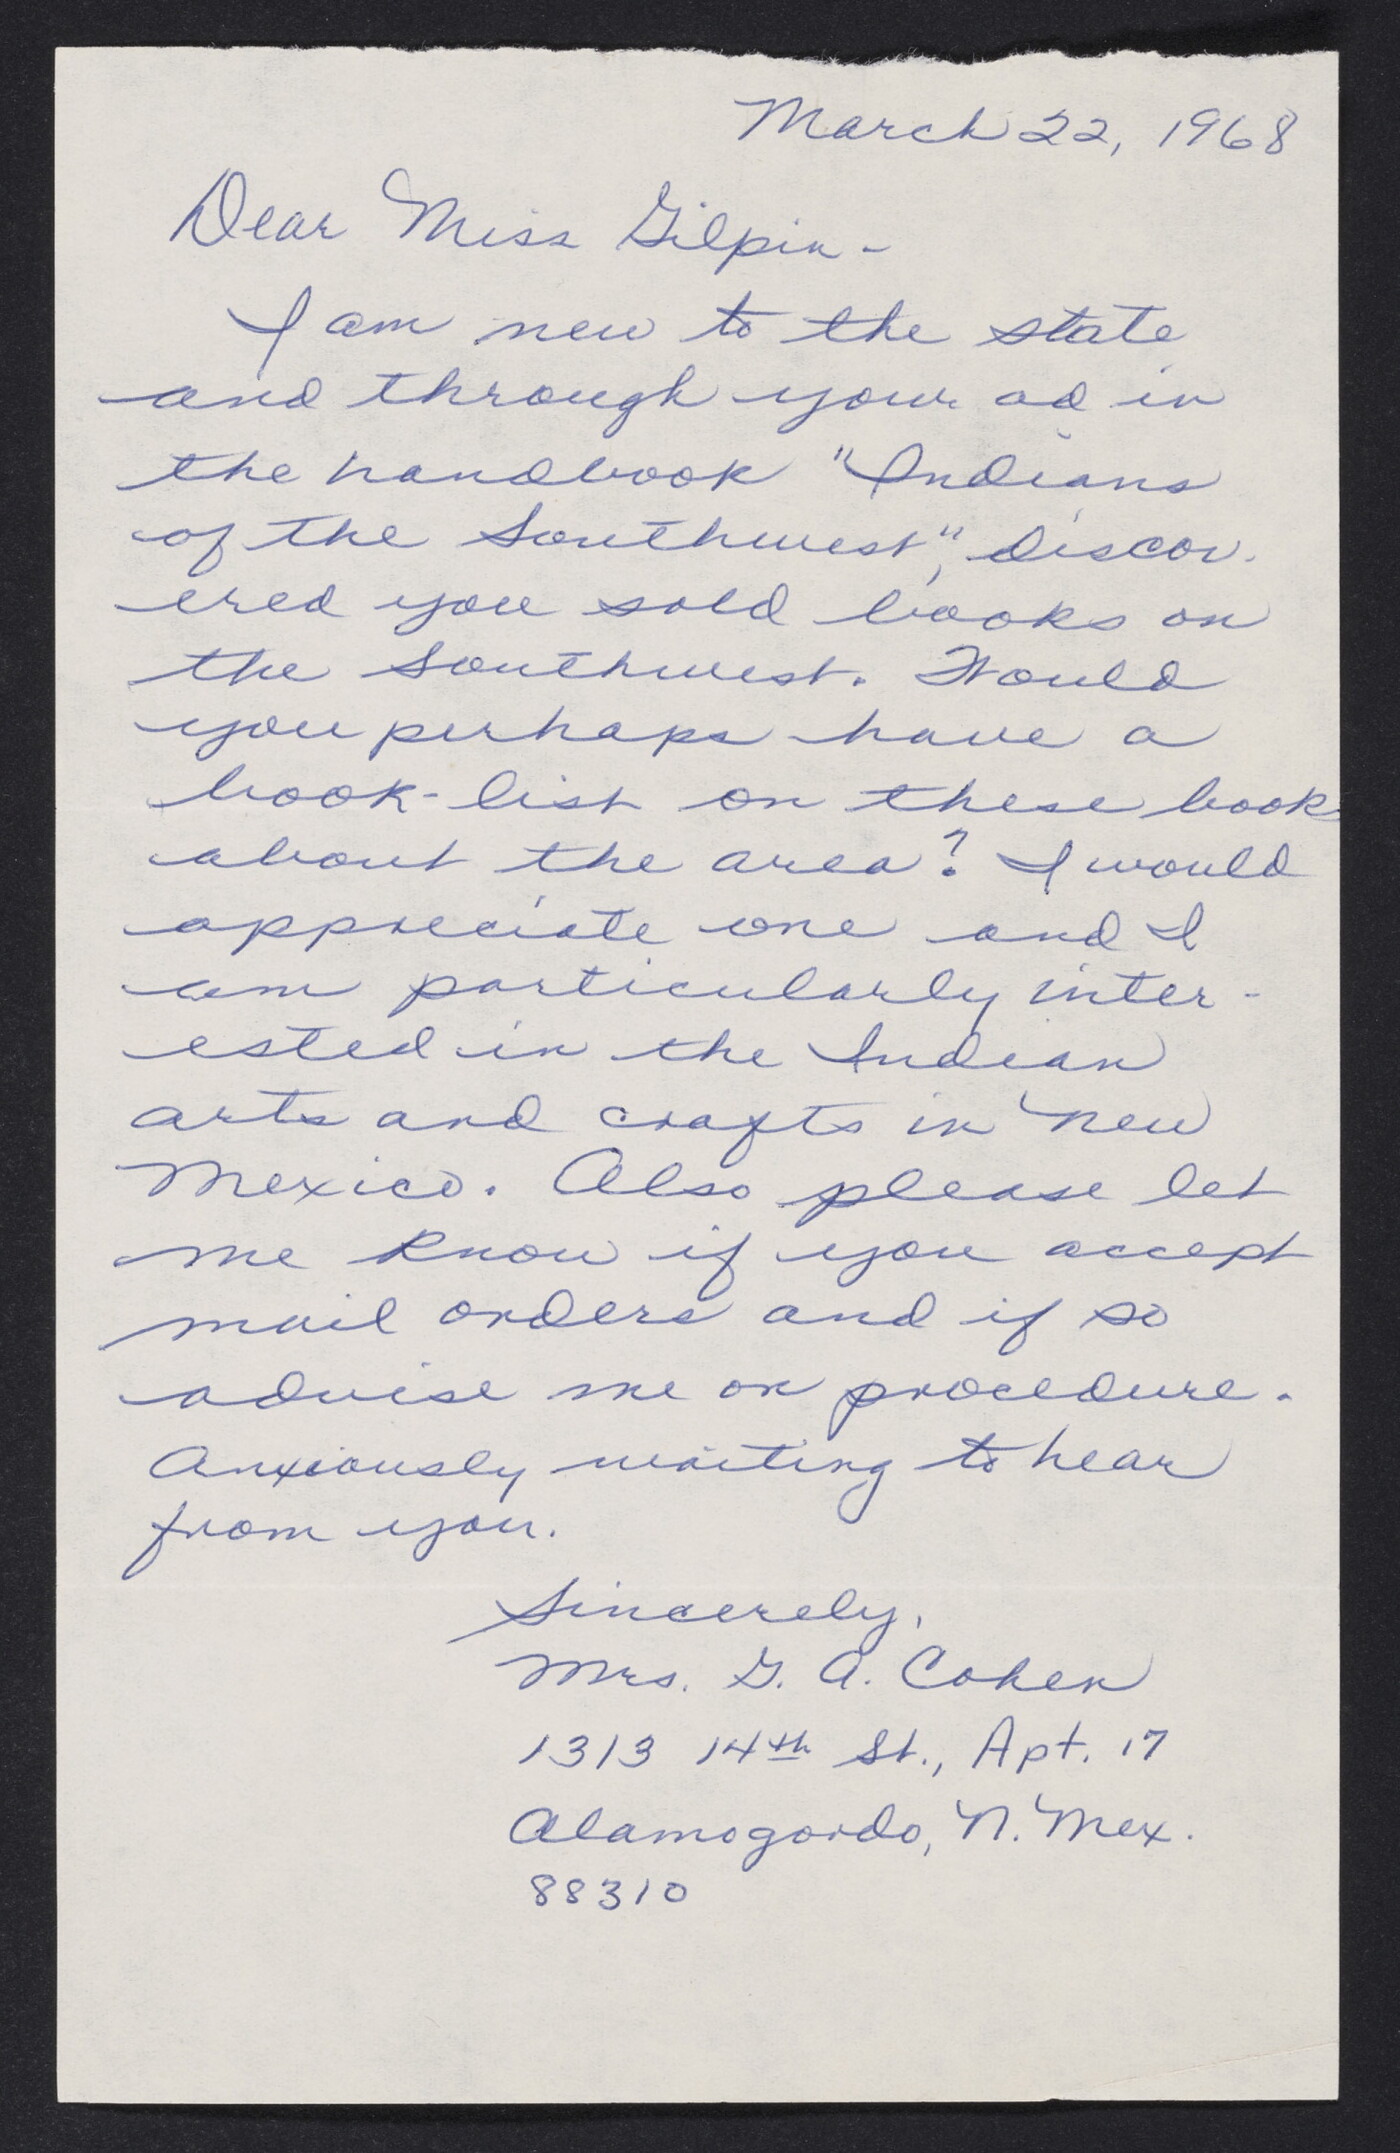 March 22, 1968
Dear Miss Gilpin -
I am new to the state
and through your ad in
the handbook "Indians
of the Southwest", discov-
ered you sold books on
the Southwest. Would
you perhaps have a
book-list on these books
about the area? I would
appreciate one and I
am particularly inter-
ested in the Indian
arts and crafts in New
Mexico. Also please let
me know if you accept
mail orders and if so
advise me on procedure.
Anxiously waiting to hear
from you.
Sincerely,
Mrs. G. A. Cohen
1313 14th St., Apt. 17
Alamogordo, N. Mex.
88310